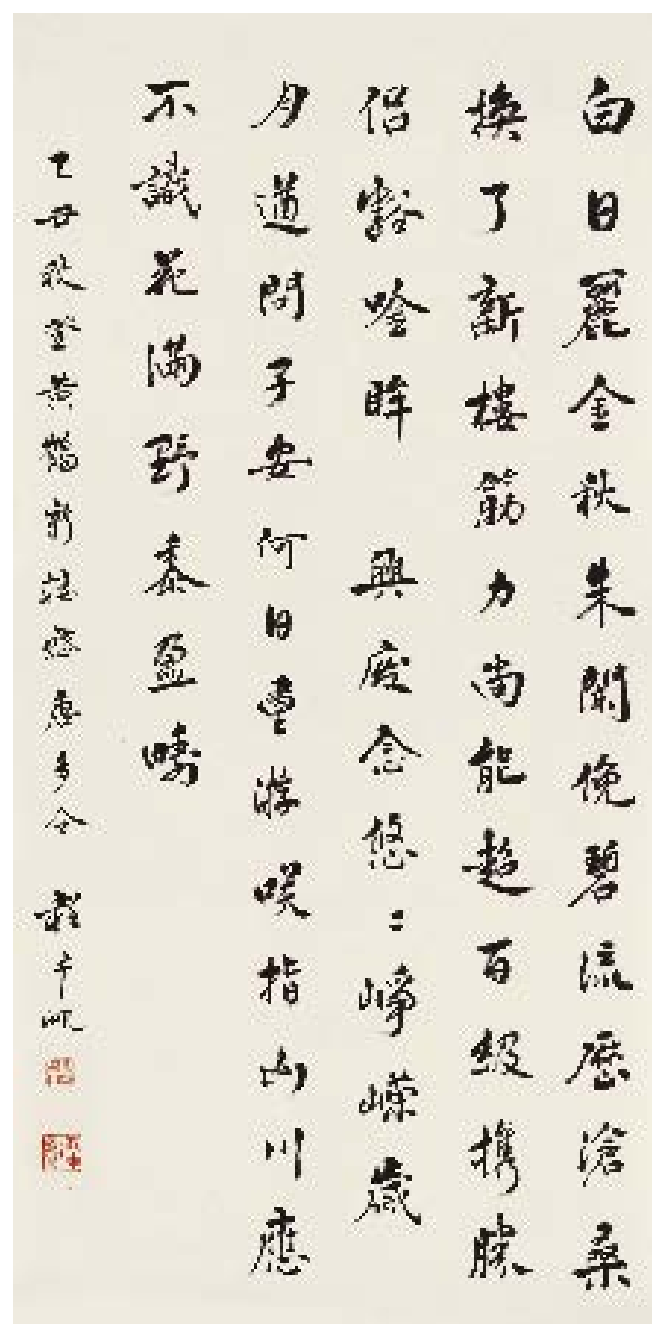 白日麗金秋朱闌俛碧流歷滄桑
換了新樓筋力尚能超百級攜勝
侶豁吟眸 興廢念悠〻崢嶸歲
月遒問子安何日重游咲指山川應
不識花滿野黍盈疇
乙丑秋登黃鶴新樓 唐多令 程千帆